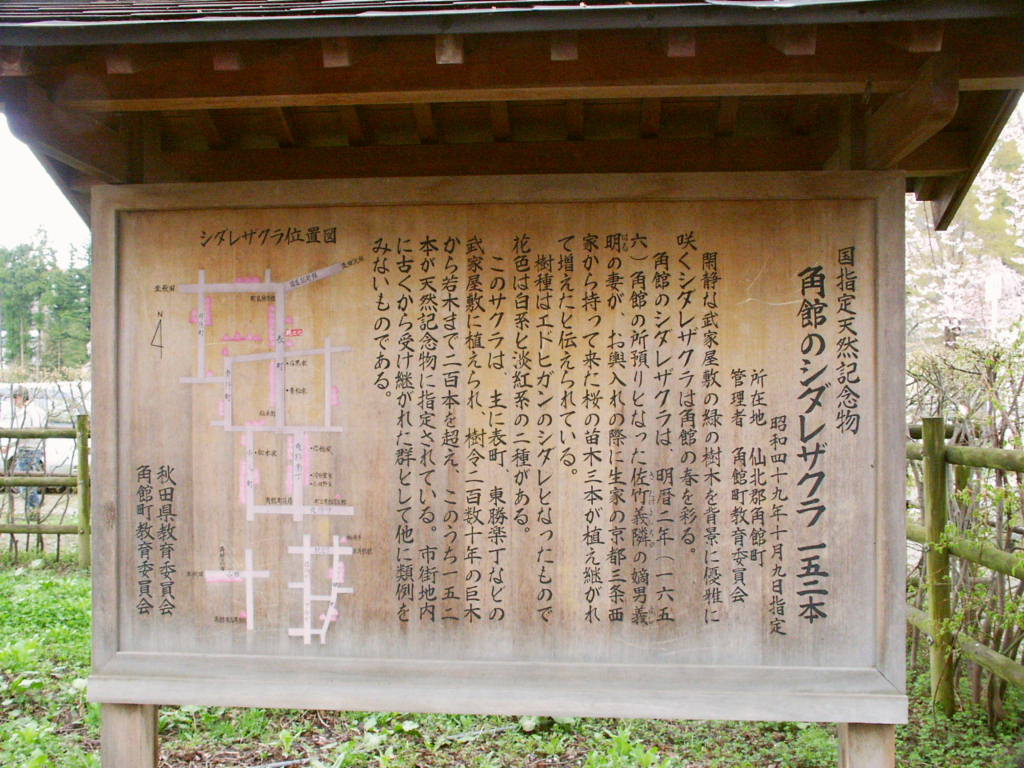 国指定天然記念物
角館のシダレザクラ 一五二本
昭和四十九年十月九日指定
所在地 仙北郡角館町
管理者 角館町教育委員会
閑静な武家屋敷の緑の樹木を背景に優雅に
咲くシダレザクラは角館の春を彩る。
角館のシダレザクラは、明暦二年（一六五
六）角館の所預りとなった佐竹義隣の嫡男義
明の妻が、お輿入れの際に生家の京都三条西
家から持って来た桜の苗木三本が植え継がれ
て増えたと伝えられている。
樹種はエドヒガンのシダレとなったもので
花色は白系と淡紅系の二種がある。
このサクラは、主に表町、東勝楽丁などの
武家屋敷に植えられ、樹令二百数十年の巨木
から若木まで二百本を超え、このうち一五二
本が天然記念物に指定されている。市街地内
に古くから受け継がれた群として他に類例を
みないものである。
シダレザクラ位置図
N
秋田県教育委員会
角館町教育委員会